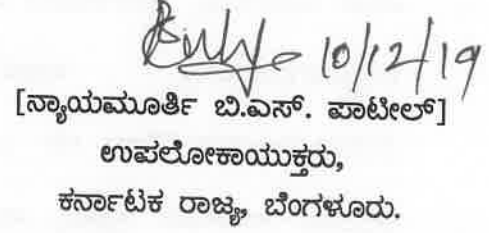 10/12/19
[ನ್ಯಾಯಮೂರ್ತಿ ಬಿ.ಎಸ್. ಪಾಟೀಲ್]
ಉಪಲೋಕಾಯುಕ್ತರು,
ಕರ್ನಾಟಕ ರಾಜ್ಯ, ಬೆಂಗಳೂರು.